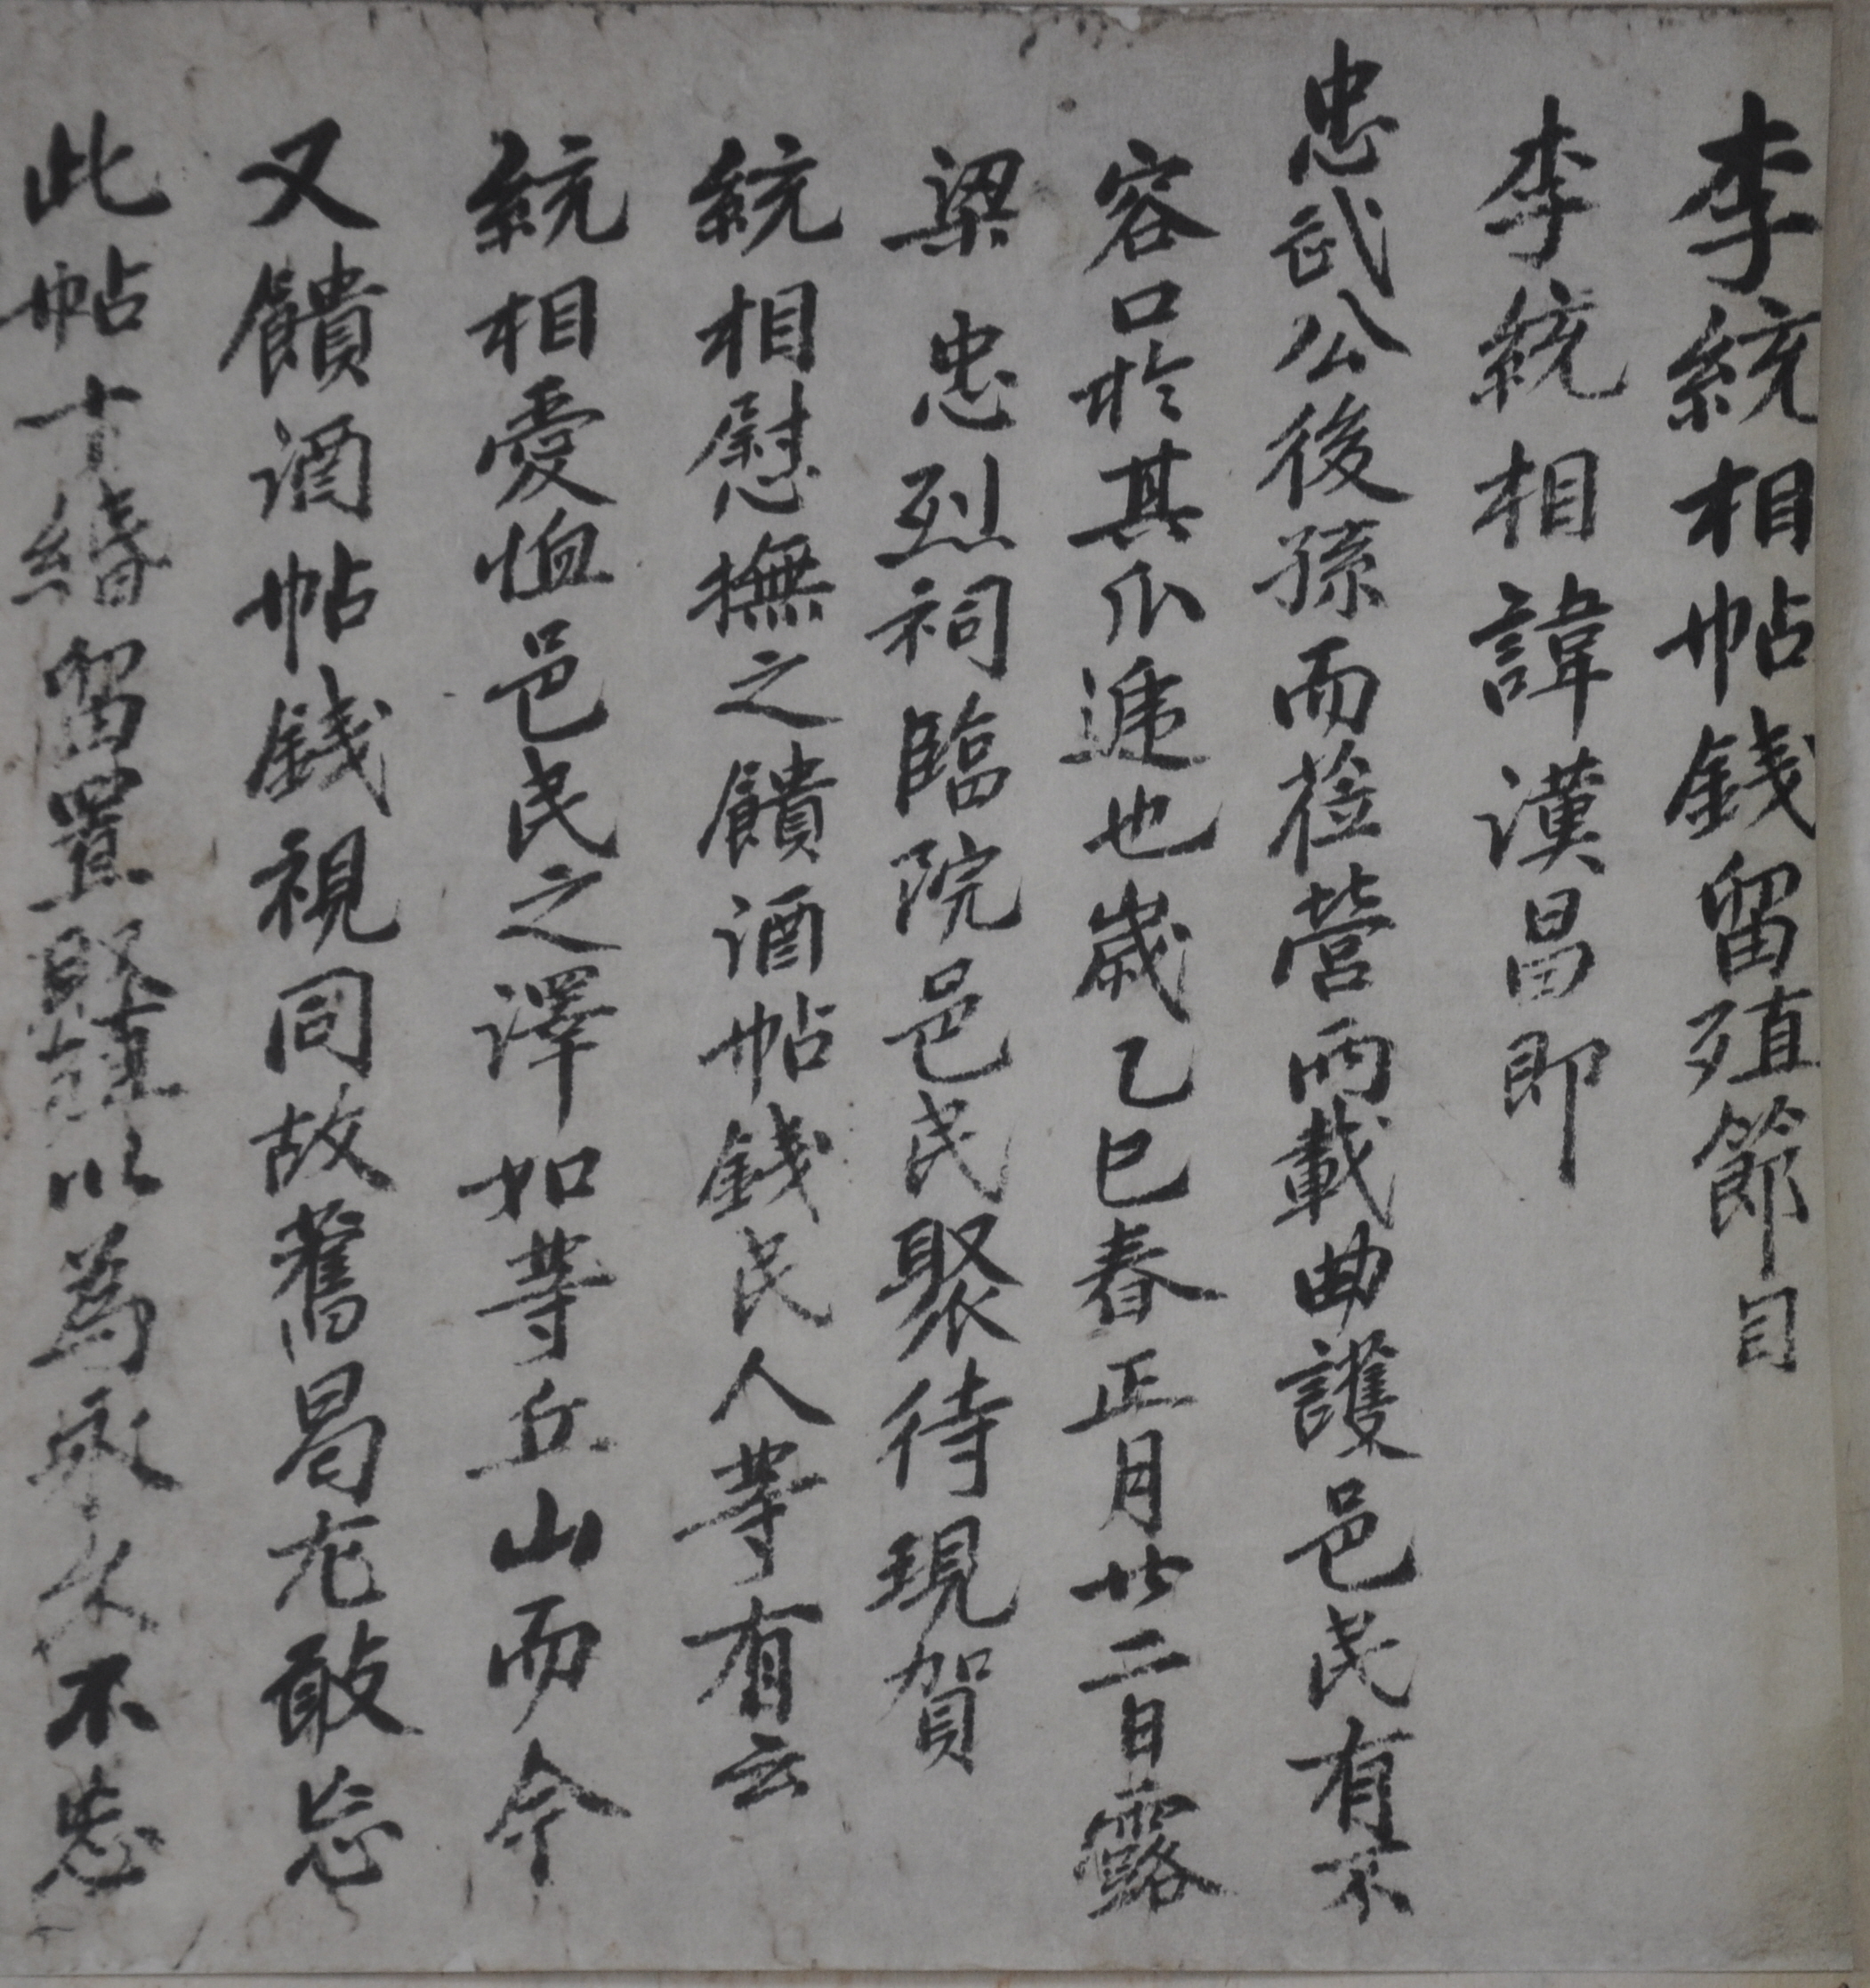 李統相帖錢留殖節目
李統相諱漢昌即
忠武公後孫而莅營兩載曲護邑民有不
容口於其瓜遞也歲乙巳春正月廿二日露
梁忠烈祠臨院邑民聚待現賀
統相慰撫之饋酒帖錢民人等有云
統相愛恤邑民之澤如等丘山而今
又饋酒帖錢視同故舊曷充敢忘
此帖十緡留置賢以為永久不忘